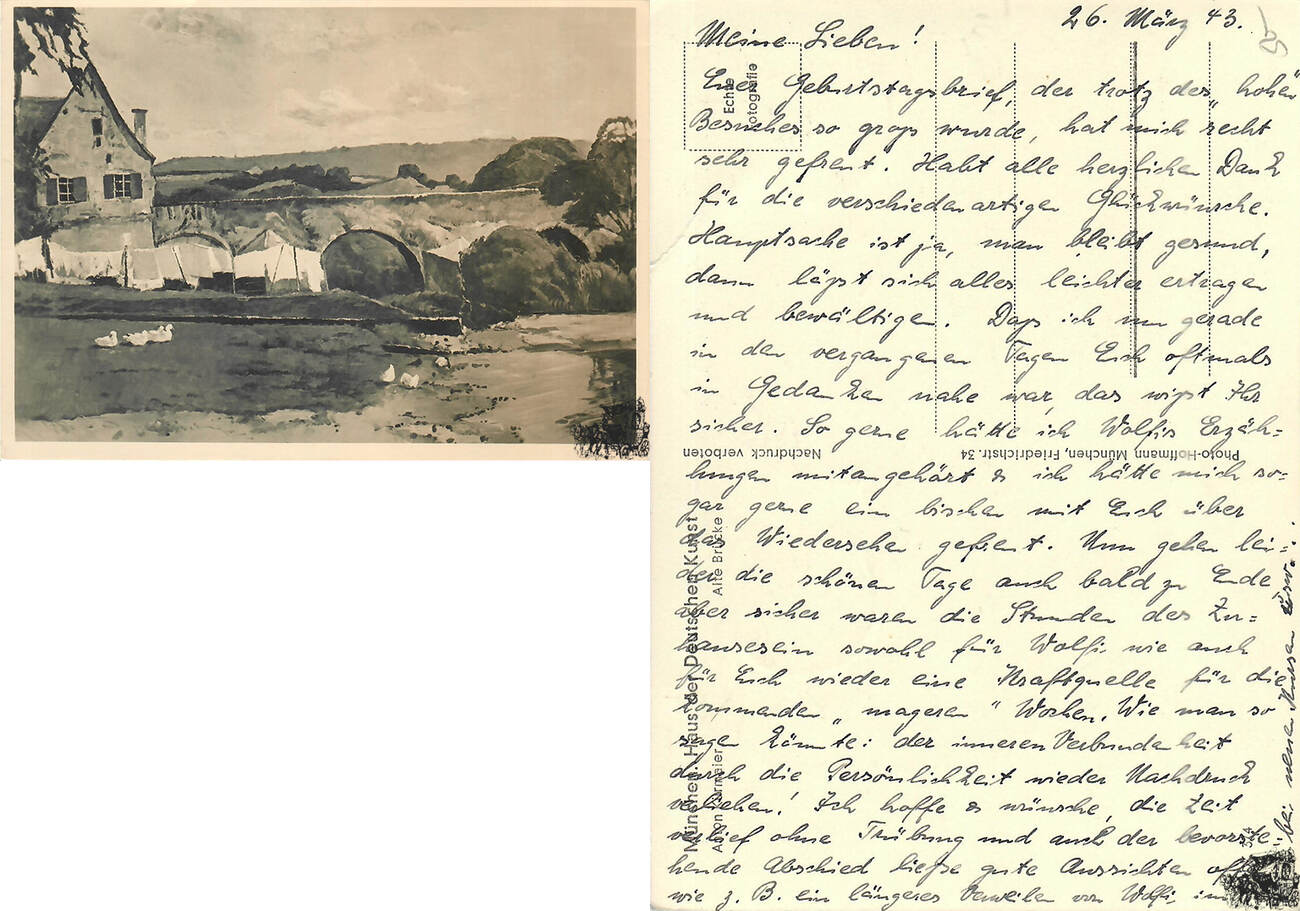 26. März 43.
Meine Lieben!
Euer Geburtstagsbrief, der trotz des „hohen"
Besuches so gross wurde, hat mich recht
sehr gefreut. Habt alle herzlichen Dank
für die verschiedenartigen Glückwünsche.
Hauptsache ist ja, man bleibt gesund,
dann lässt sich alles leichter ertragen
und bewältigen. Dass ich nun gerade
in den vergangenen Tagen Euch oftmals
in Gedanken nahe war, das wisst Ihr
sicher. So gerne hätte ich Wolfis Erzäh=
lungen mitangehört & ich hätte mich so=
gar gerne ein bischen mit Euch über
das Wiedersehen gefreut. Nun gehen lei=
der die schönen Tage auch bald zu Ende
aber sicher waren die Stunden des Zu=
hauseseins sowohl für Wolfi wie auch
für Euch wieder eine Kraftquelle für die
kommenden „mageren" Wochen. Wie man so
sagen könnte: der inneren Verbundenheit
durch die Persönlichkeit wieder Nachdruck
verliehen! Ich hoffe & wünsche, die Zeit
verlief ohne Trübung und auch der bevorste=
hende Abschied liesse gute Aussichten
wie z. B. ein längeres Verweilen von Wolfi, im
bei neuen Kursen usw.
Echte
Fotografie
Photo-Hoffmann, München, Friedrichstr. 34
Nachdruck verboten
München, Haus der Deutschen Kunst
Alte Brücke